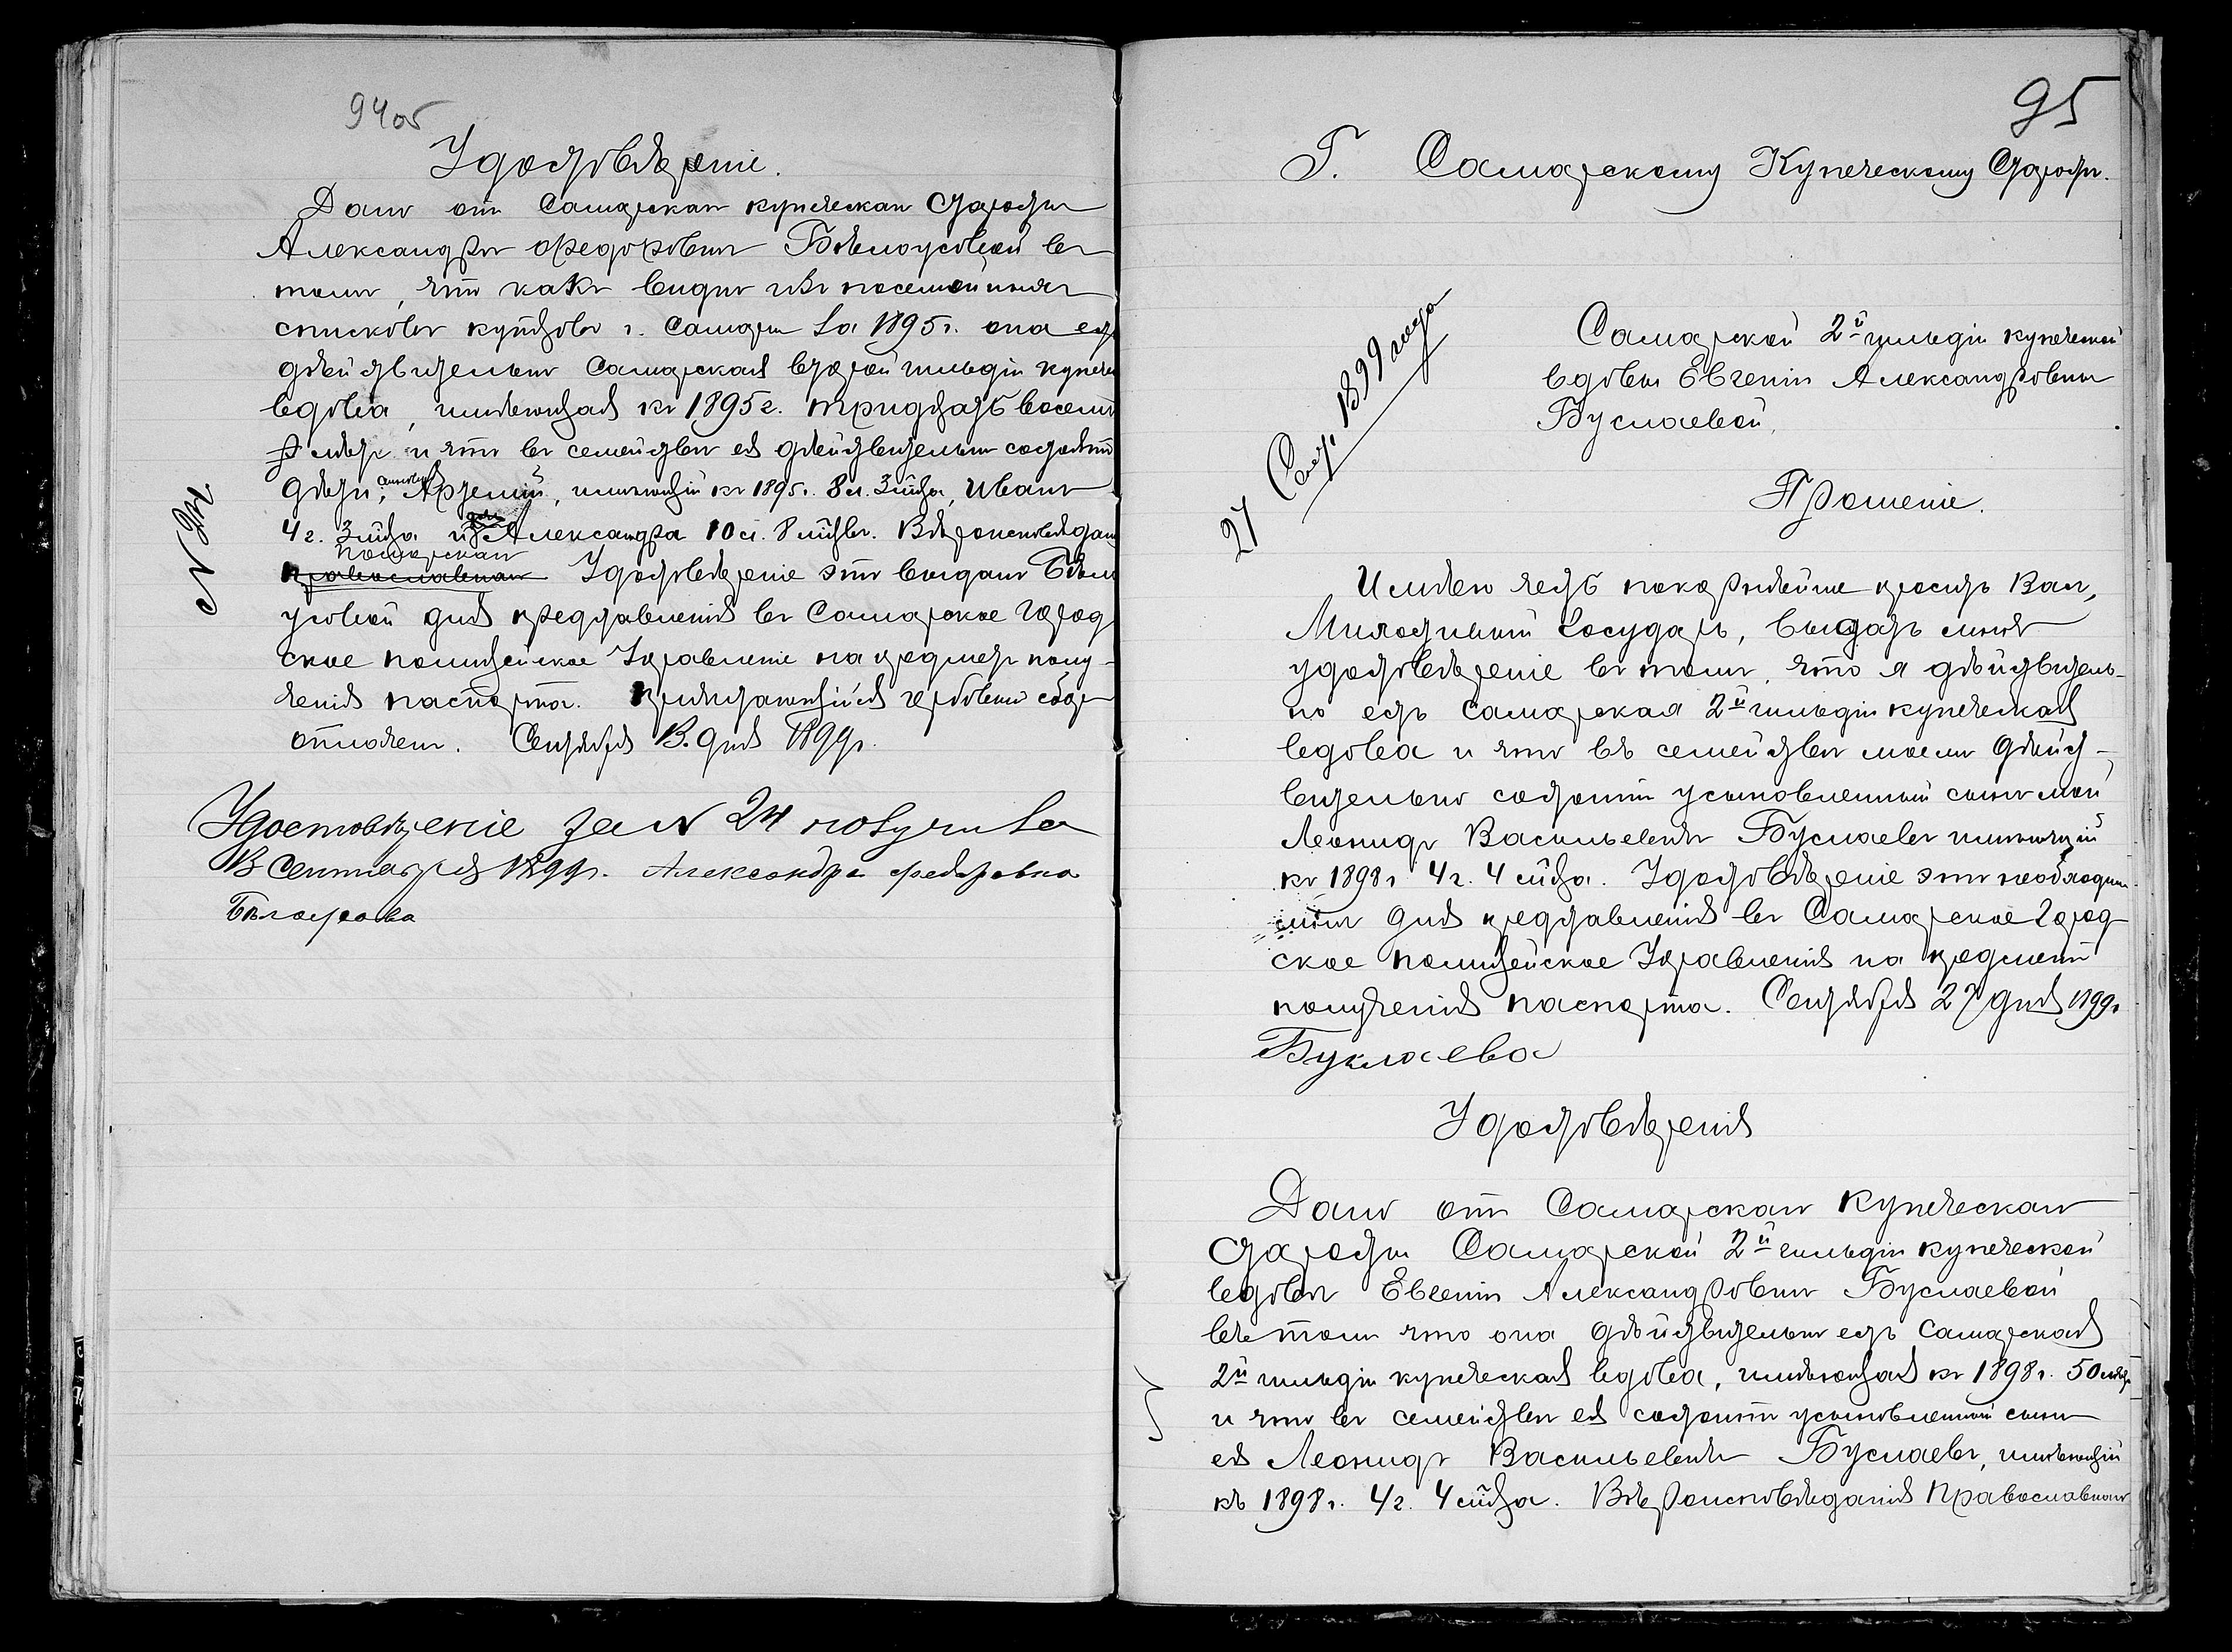 94об
Удостовѣреніе.
Дано отъ Самарскаго купеческаго Старосты
Александрѣ Ѳедоровнѣ Бѣлоусовой въ
томъ, что какъ видно изъ посемейныхъ
списковъ купцовъ г. Самары за 1895 г. она есть
дѣйствительно Самарская второй гильдіи купече
вдова, имѣющая къ 1895 г. тридцать восемь
лѣтъ и что въ семействѣ ея дѣйствительно состоятъ
дѣти: сыновья Артемій, имѣющій къ 1895 г. 8 л. 3 мѣсца, Иванъ
4 г. 3 мѣсца и дочь Александра 10 л. 8 мѣсцевъ. Вѣроисповѣдан
поморскаго
православнаго Удостовѣреніе это выдано Бѣло
усовой для представленія въ Самарское Город
ское полицейское Управленіе на предметъ полу-
ченія паспорта. Причитающійся гербовый сборъ
оплоченъ. Сентября 13 дня 1899 г.
№ 24
Удостовѣреніе за № 24 получила
13 Сентября 1899 г. Александра Федоровна
Бѣлоусова
95
Г. Самарскому Купеческому Старостѣ.
27 Сент. 1899 года
Самарской 2й гильдіи купеческой
вдовы Евгеніи Александровны
Буслаевой,
Прошеніе.
Имѣю честь покорнѣйше просить Васъ,
Милостивый Государь, выдать мнѣ
удостовѣреніе въ томъ, что я дѣйствитель-
но есть Самарская 2й гильдіи купеческая
вдова и что въ семействѣ моемъ дѣйст-
вительно состоитъ усыновленный сынъ мой
Леонидъ Васильевичъ Буслаевъ имѣющій
къ 1898 г. 4 г. 4 мѣсца. Удостовѣреніе это необходимо
мнѣ для представленія въ Самарское Город
ское полицейское Управленія на предметъ
полученія паспорта. Сентября 27 дня 1899 г.
Буслаева
Удостовѣренія
Дано отъ Самарскаго Купеческаго
Старосты Самарской 2й гильдіи купеческой
вдовѣ Евгеніи Александровнѣ Буслаевой
въ томъ что она дѣйствительно есть Самарская
2й гильдіи купеческая вдова, имѣющая къ 1898 г. 50 лѣтъ
и что въ семействѣ ея состоитъ усыновленный сынъ
ея Леонидъ Васильевичъ Буслаевъ, имѣющій
къ 1898 г. 4 г. 4 мѣсца. Вѣроисповѣданія Православнаго